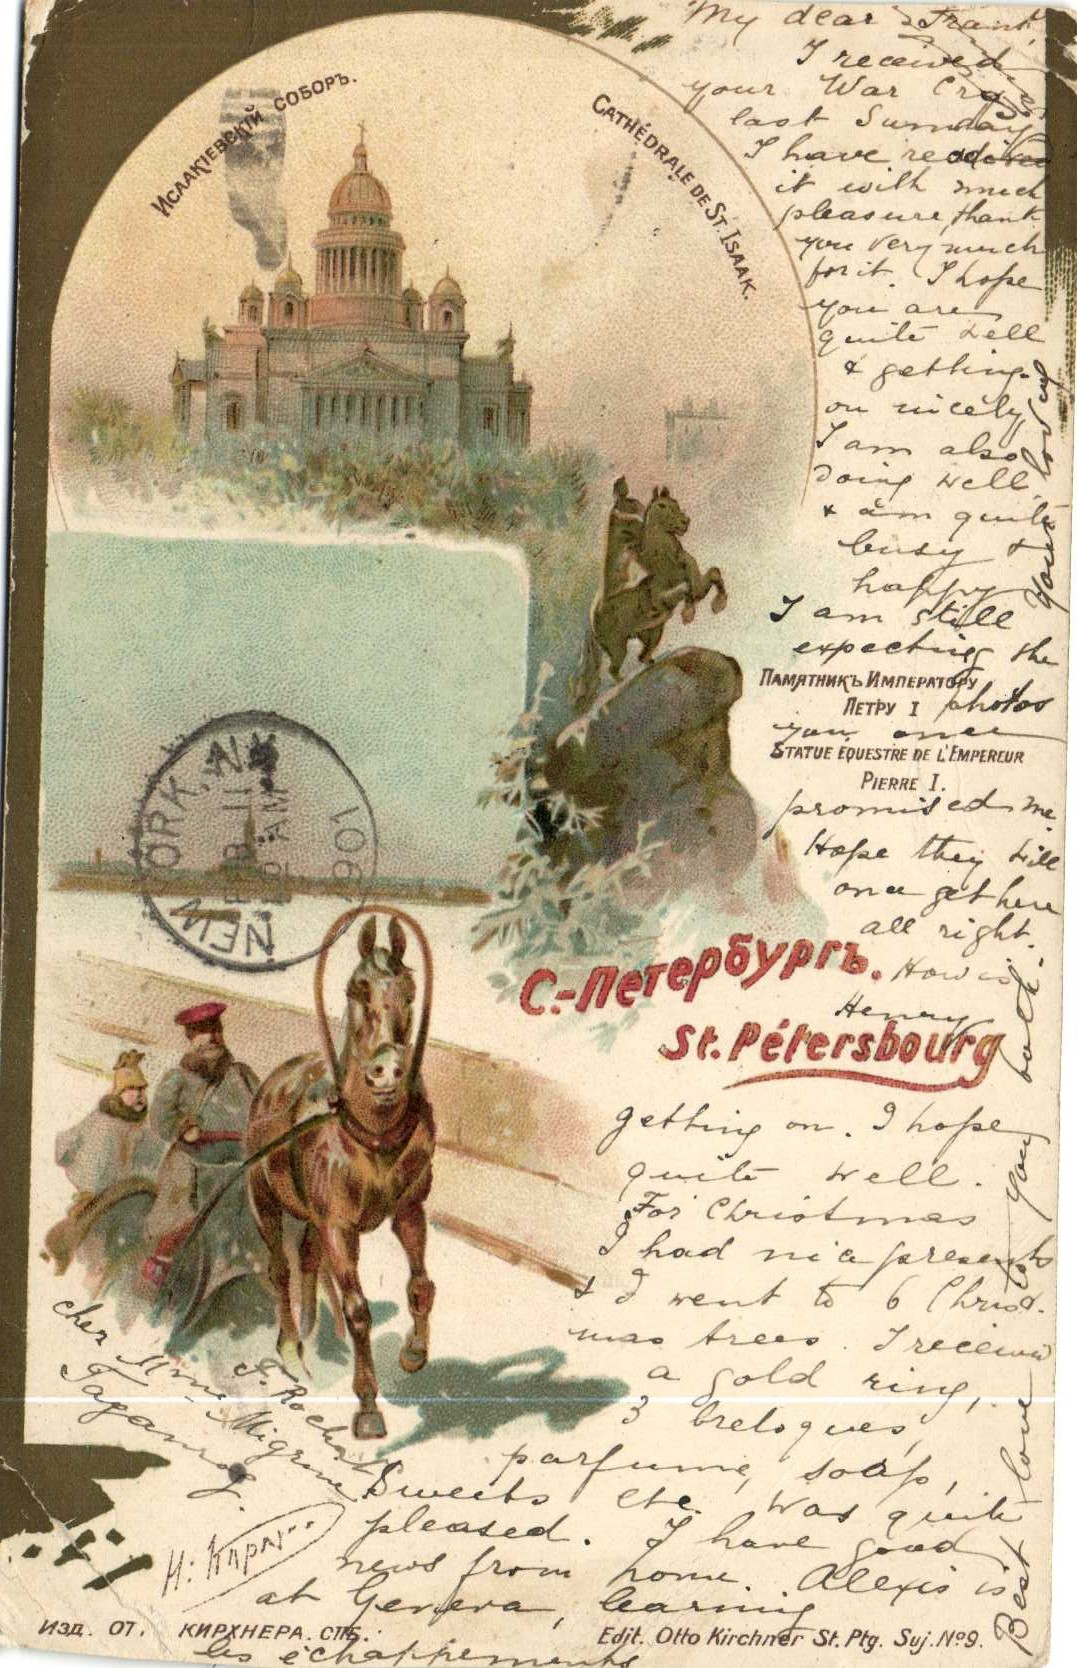 Исаакіевскій соборъ.
Cathédrale de St. Isaak.
My dear Frank,
I received
your War Cry
last Sunday
I have
it with much
pleasure, thank
you very much
for it. I hope
you are
quite well
& getting
on nicely,
I am also
doing well
& am quite
busy &
happy
I am still
expecting the
Памятникъ Императору
Петру I
photos
you once
Statue equestre de l'Empereur
Pierre I.
promised me.
Hope they will
once get here
all right.
How is
Henry
С.-Петербургъ.
St. Pétersbourg
getting on. I hope
quite well.
For Christmas
I had nice presents
& I went to 6 Christ-
mas trees. I received
a gold ring,
3 breloques,
parfume, soap,
Sweets etc. was quite
pleased. I have good
news from home. Alexis is
at Geneva, learning
les échappements
Best love to you both.
Your loving
F. Rochat
chez Mme Migrine
Taganrog.
NEW YORK, N.Y.
11
AM
1901
Изд. От. Кирхнера. СПБ.
Edit. Otto Kirchner St. Ptg. Suj. No 9.